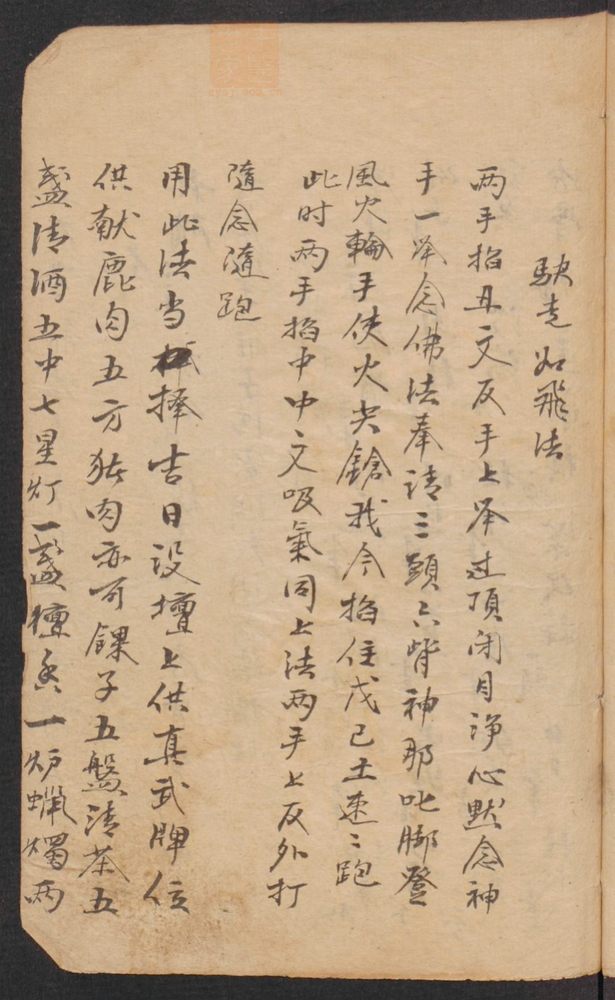 馱走如飛法
两手掐丑文反手上举过顶闭目净心默念神
手一举念佛法奉请三頭六臂神那叱脚登
風火輪手使火尖鎗我今掐住戊己土速〻跑
此时两手掐中中文吸氣同上法两手上反外打
隨念隨跑
用此法当择吉日设壇上供真武牌位
供献鹿肉五方猪肉亦可馃子五盤清茶五
盏清酒五中七星灯一盏檀香一炉蝋燭两